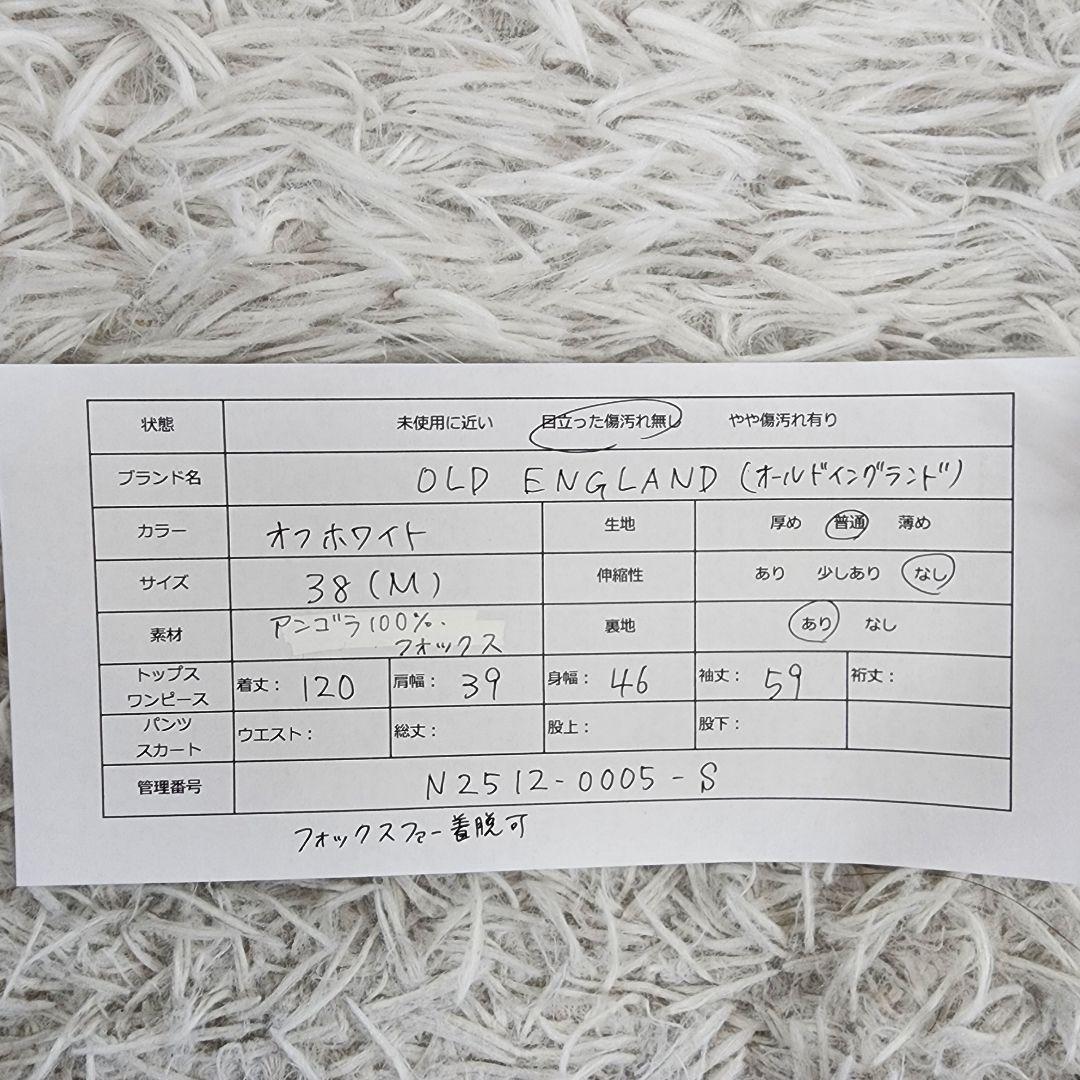 状態 未使用に近い 目立った傷汚れ無し やや傷汚れ有り
ブランド名 OLD ENGLAND (オールドイングランド)
カラー オフホワイト 生地 厚め 普通 薄め
サイズ 38(M) 伸縮性 あり 少しあり なし
素材 アンゴラ100%. フォックス 裏地 あり なし
トップス ワンピース 着丈: 120 肩幅: 39 身幅: 46 袖丈: 59 裄丈:
パンツ スカート ウエスト: 総丈: 股上: 股下:
管理番号 N2512-0005-S
フォックスファー着脱可